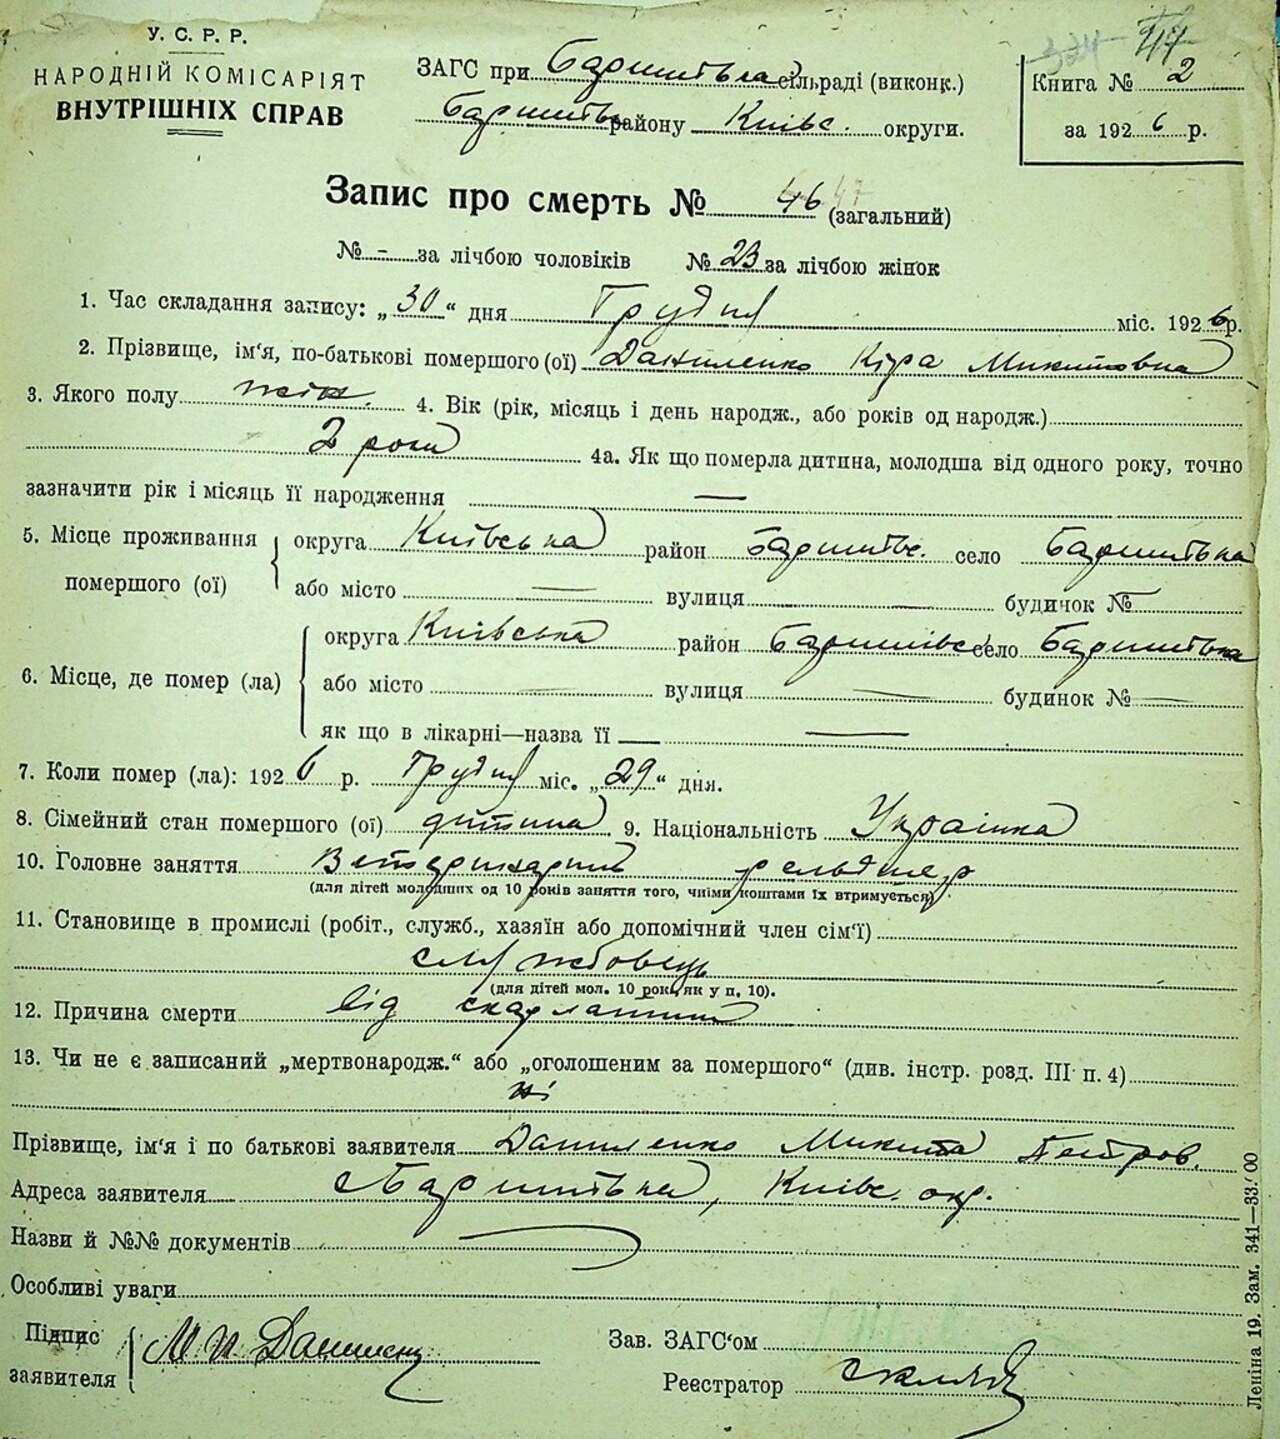 У. С. Р. Р.
НАРОДНІЙ КОМІСАРІЯТ
ВНУТРІШНІХ СПРАВ
ЗАГС при Баришівка сільраді (виконк.)
Баришівс району Київс. округи.
Книга № 2
за 1926 р.
Запис про смерть № 46 47 (загальний)
№ - за лічбою чоловіків № 23 за лічбою жінок
1. Час складання запису: „30“ дня Грудня міс. 1926 р.
2. Прізвище, ім‘я, по-батькові помершого (ої) Даниленко Кіра Микитовна
3. Якого полу жін. 4. Вік (рік, місяць і день народж., або років од народж.)
2 роки 4а. Як що померла дитина, молодша від одного року, точно
зазначити рік і місяць її народження —
5. Місце проживання помершого (ої) округа Київська район Баришівс. село Баришівка
або місто — вулиця — будичок № —
6. Місце, де помер (ла) округа Київська район Баришівс село Баришівка
або місто — вулиця — будинок № —
як що в лікарні—назва її —
7. Коли помер (ла): 1926 р. Грудня міс. „29“ дня.
8. Сімейний стан помершого (ої) дитина 9. Національність Українка
10. Головне заняття Ветеринарний фельдшер
(для дітей молодших од 10 років заняття того, чиїми коштами їх втримується)
11. Становище в промислі (робіт., служб., хазяїн або допомічний член сім‘ї)
службовець
(для дітей мол. 10 рок. як у п. 10).
12. Причина смерти від скарлатини
13. Чи не є записаний „мертвонародж.“ або „оголошеним за помершого“ (див. інстр. розд. III п. 4)
ні
Прізвище, ім‘я і по батькові заявителя Даниленко Микита Петров.
Адреса заявителя Баришівка, Київс. окр.
Назви й №№ документів —
Особливі уваги
Підпис заявителя М П Даниленко
Зав. ЗАГС‘ом
Реєстратор
Леніна 19. Зам. 341—33.